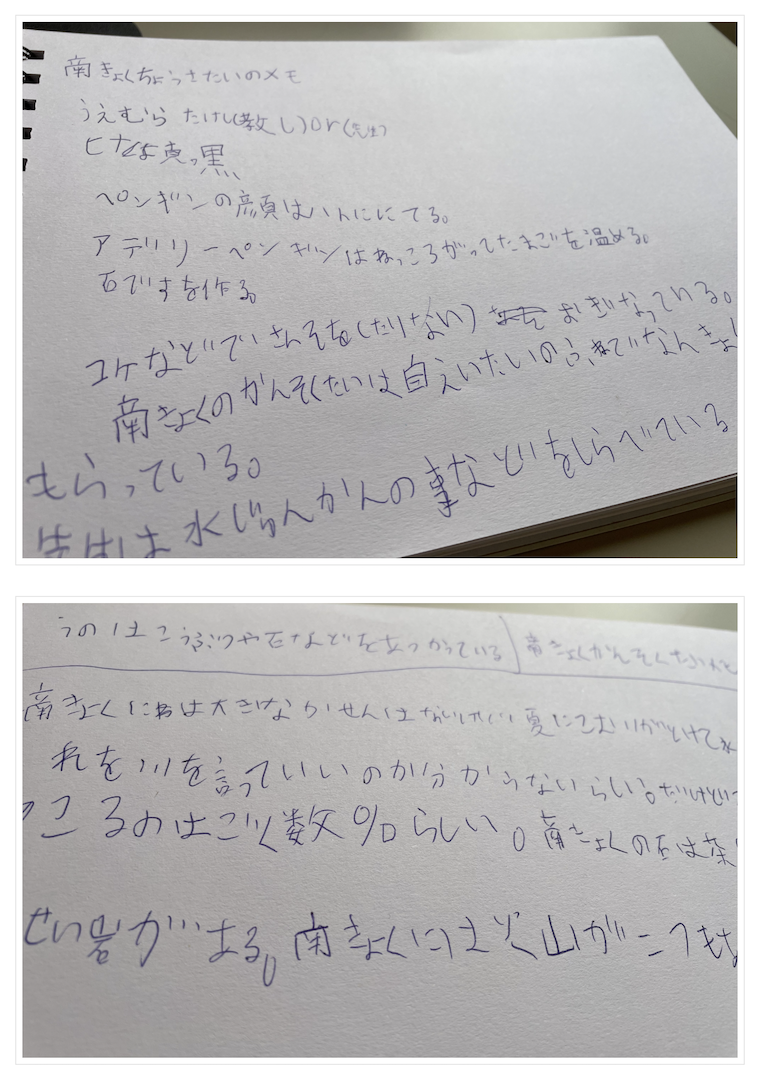 南きょくちょうさたいのメモ
うえむら たけし(教し)or(先生)
ヒナは真っ黒
ペンギンの顔はハトににてる。
アデリーペンギンはねっころがってたまごを温める。
石ですを作る
コケなどでさんそを(たりない) おぎなっている。
南きょくのかんそくたいは自えいたいの ふねでなんきょ
もらっている。
先生は水じゅんかんの事などをしらべている
うのは こうぶつや石などを
南きょくかんそくたい
南きょくには大きなかせんはないけど 夏に こおりがとけて
れを川を言っていいのか分からないらしい。だけど
こるのはごく数%らしい。南きょくの石は茶
せい岩がある。南きょくには火山が二つも